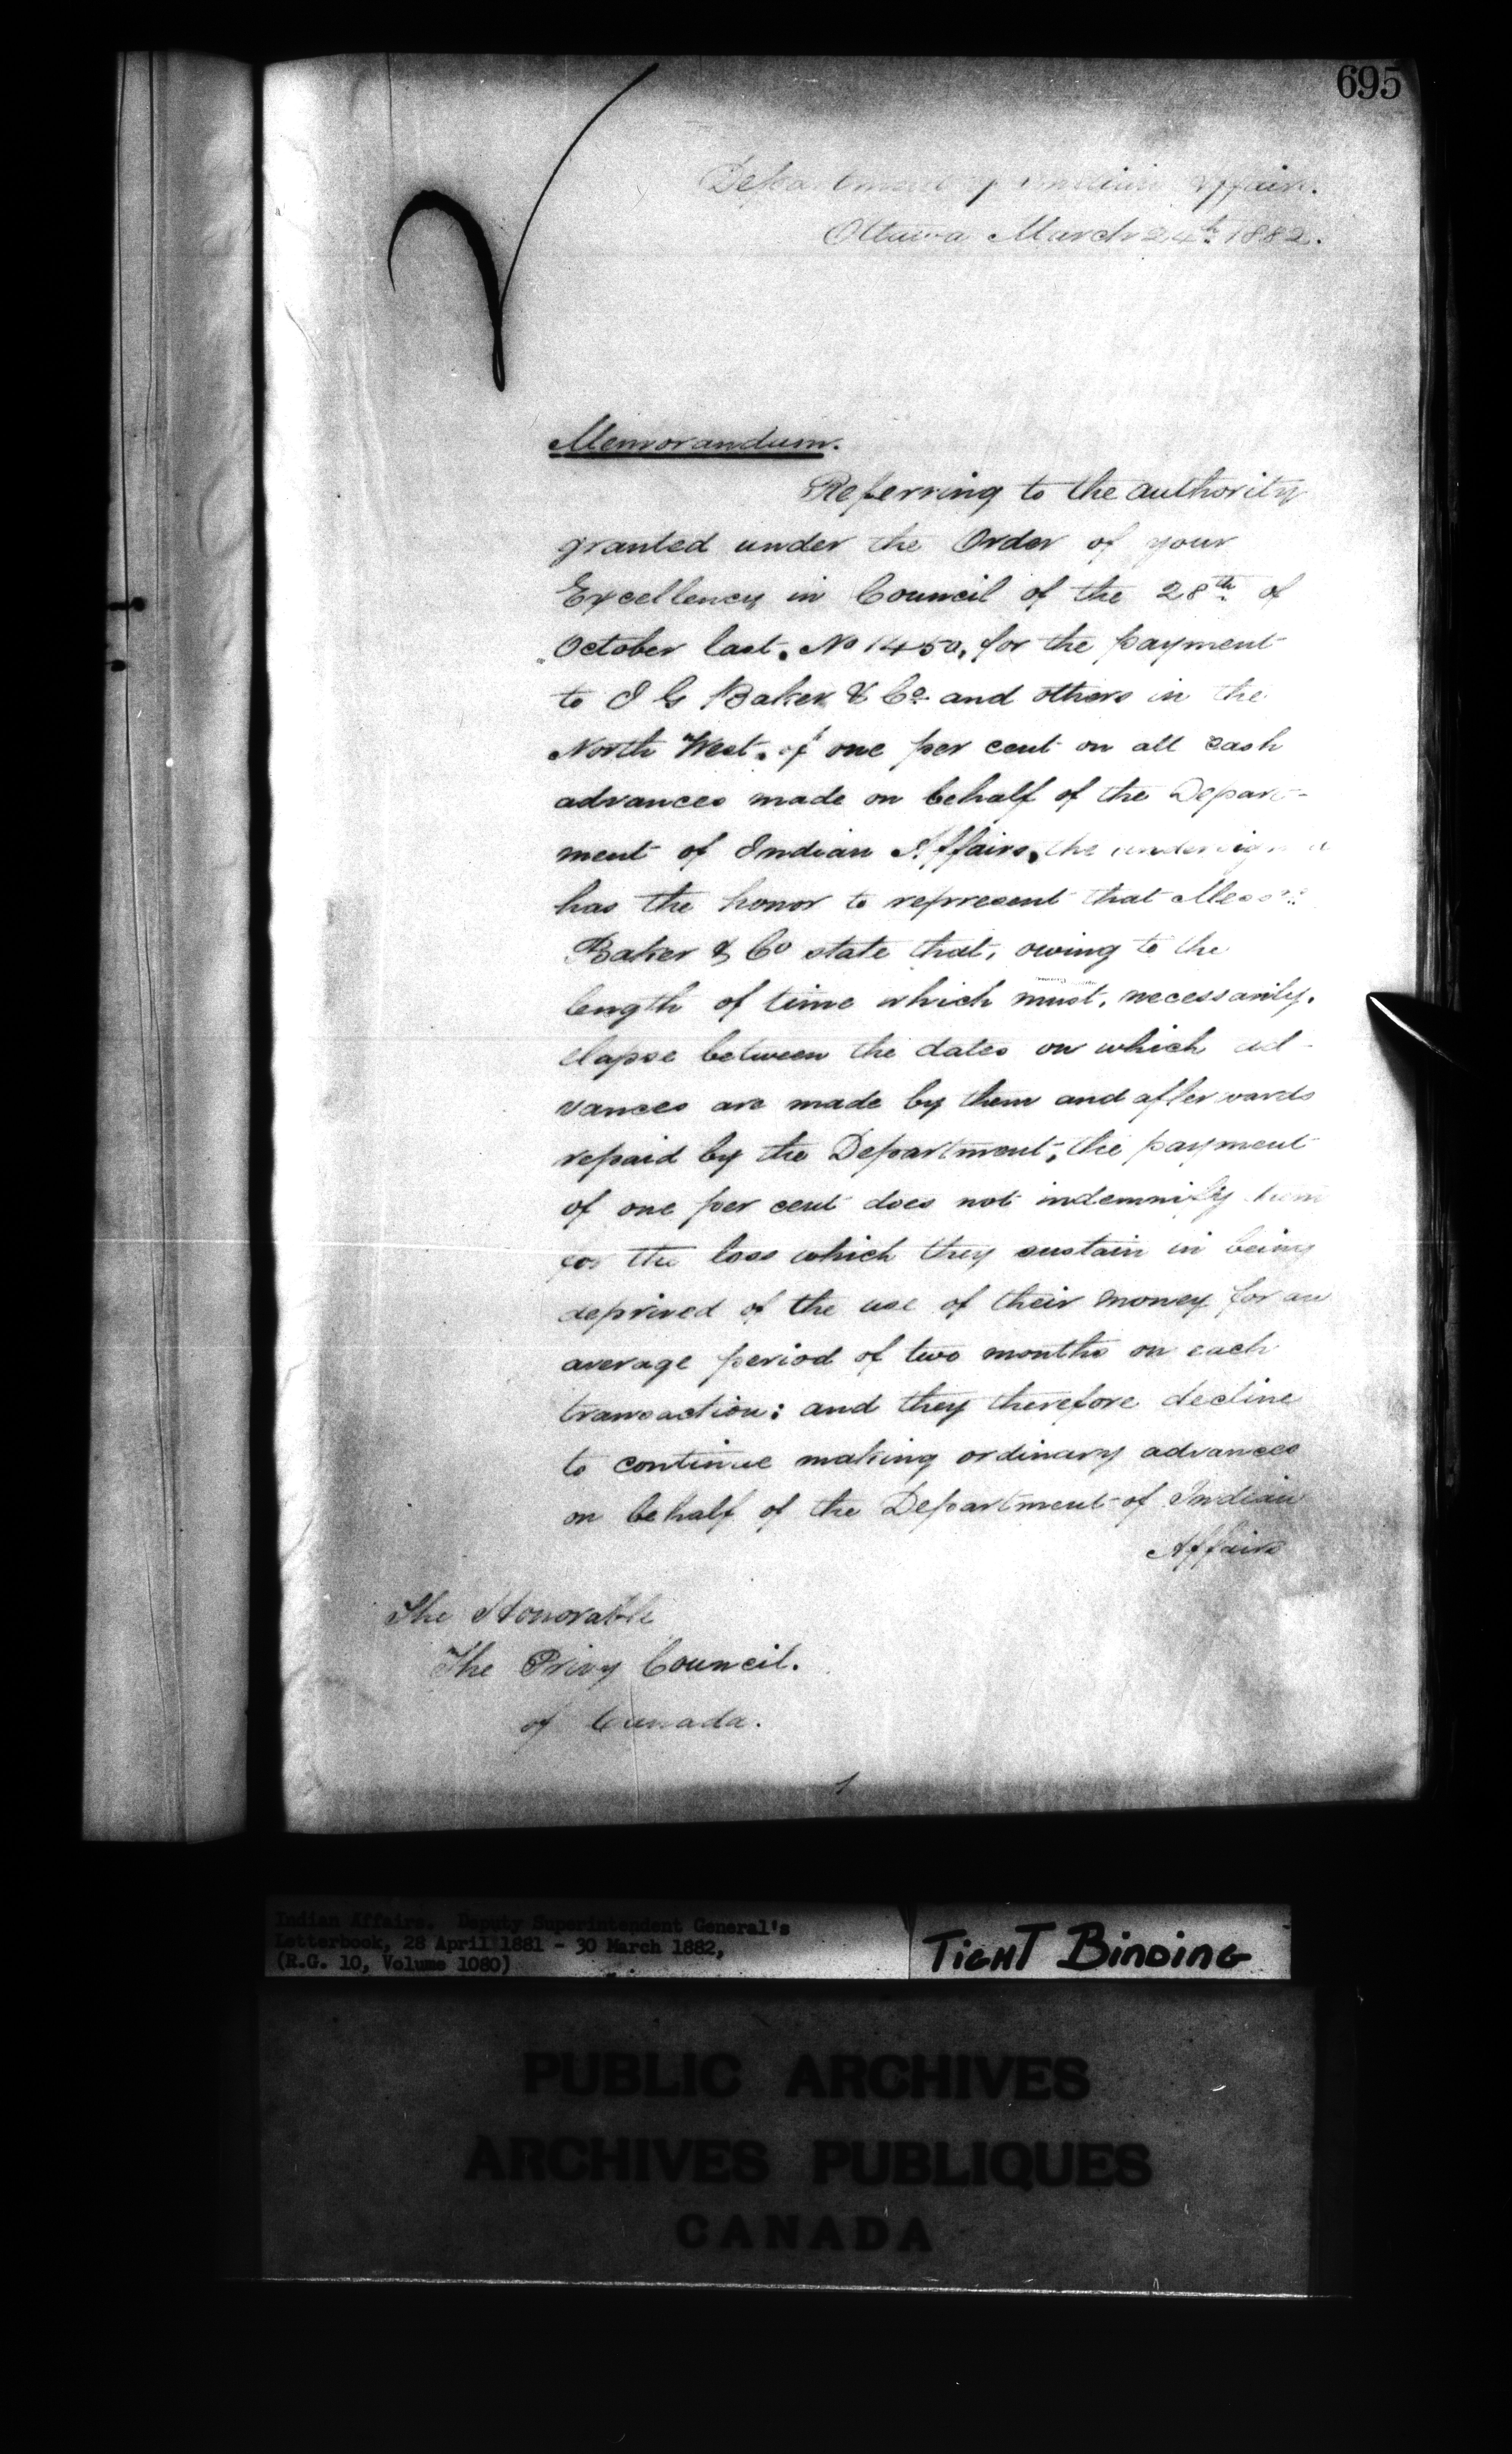 695
Department of Indian Affairs.
Ottawa March 24th 1882.
Memorandum.
Referring to the authority
granted under the Order of your
Excellency in Council of the 28th of
October last, No 1450, for the payment
to I G Baker & Co and others in the
North West, of one per cent on all cash
advances made on behalf of the Depart-
ment of Indian Affairs, the undersigned
has the honor to represent that Messrs
Baker & Co state that, owing to the
length of time which must, necessarily,
elapse between the dates on which ad-
vances are made by them and afterwards
repaid by the Department, the payment
of one per cent does not indemnify them
for the loss which they sustain in being
deprived of the use of their money for an
average period of two months on each
transaction: and they therefore decline
to continue making ordinary advances
on behalf of the Department of Indian
Affairs
The Honorable
The Privy Council.
of Canada.
Indian Affairs. Deputy Superintendent General's
Letterbook, 28 April 1881 - 30 March 1882,
(R.G. 10, Volume 1080)
TIGHT BINDING
PUBLIC ARCHIVES
ARCHIVES PUBLIQUES
CANADA